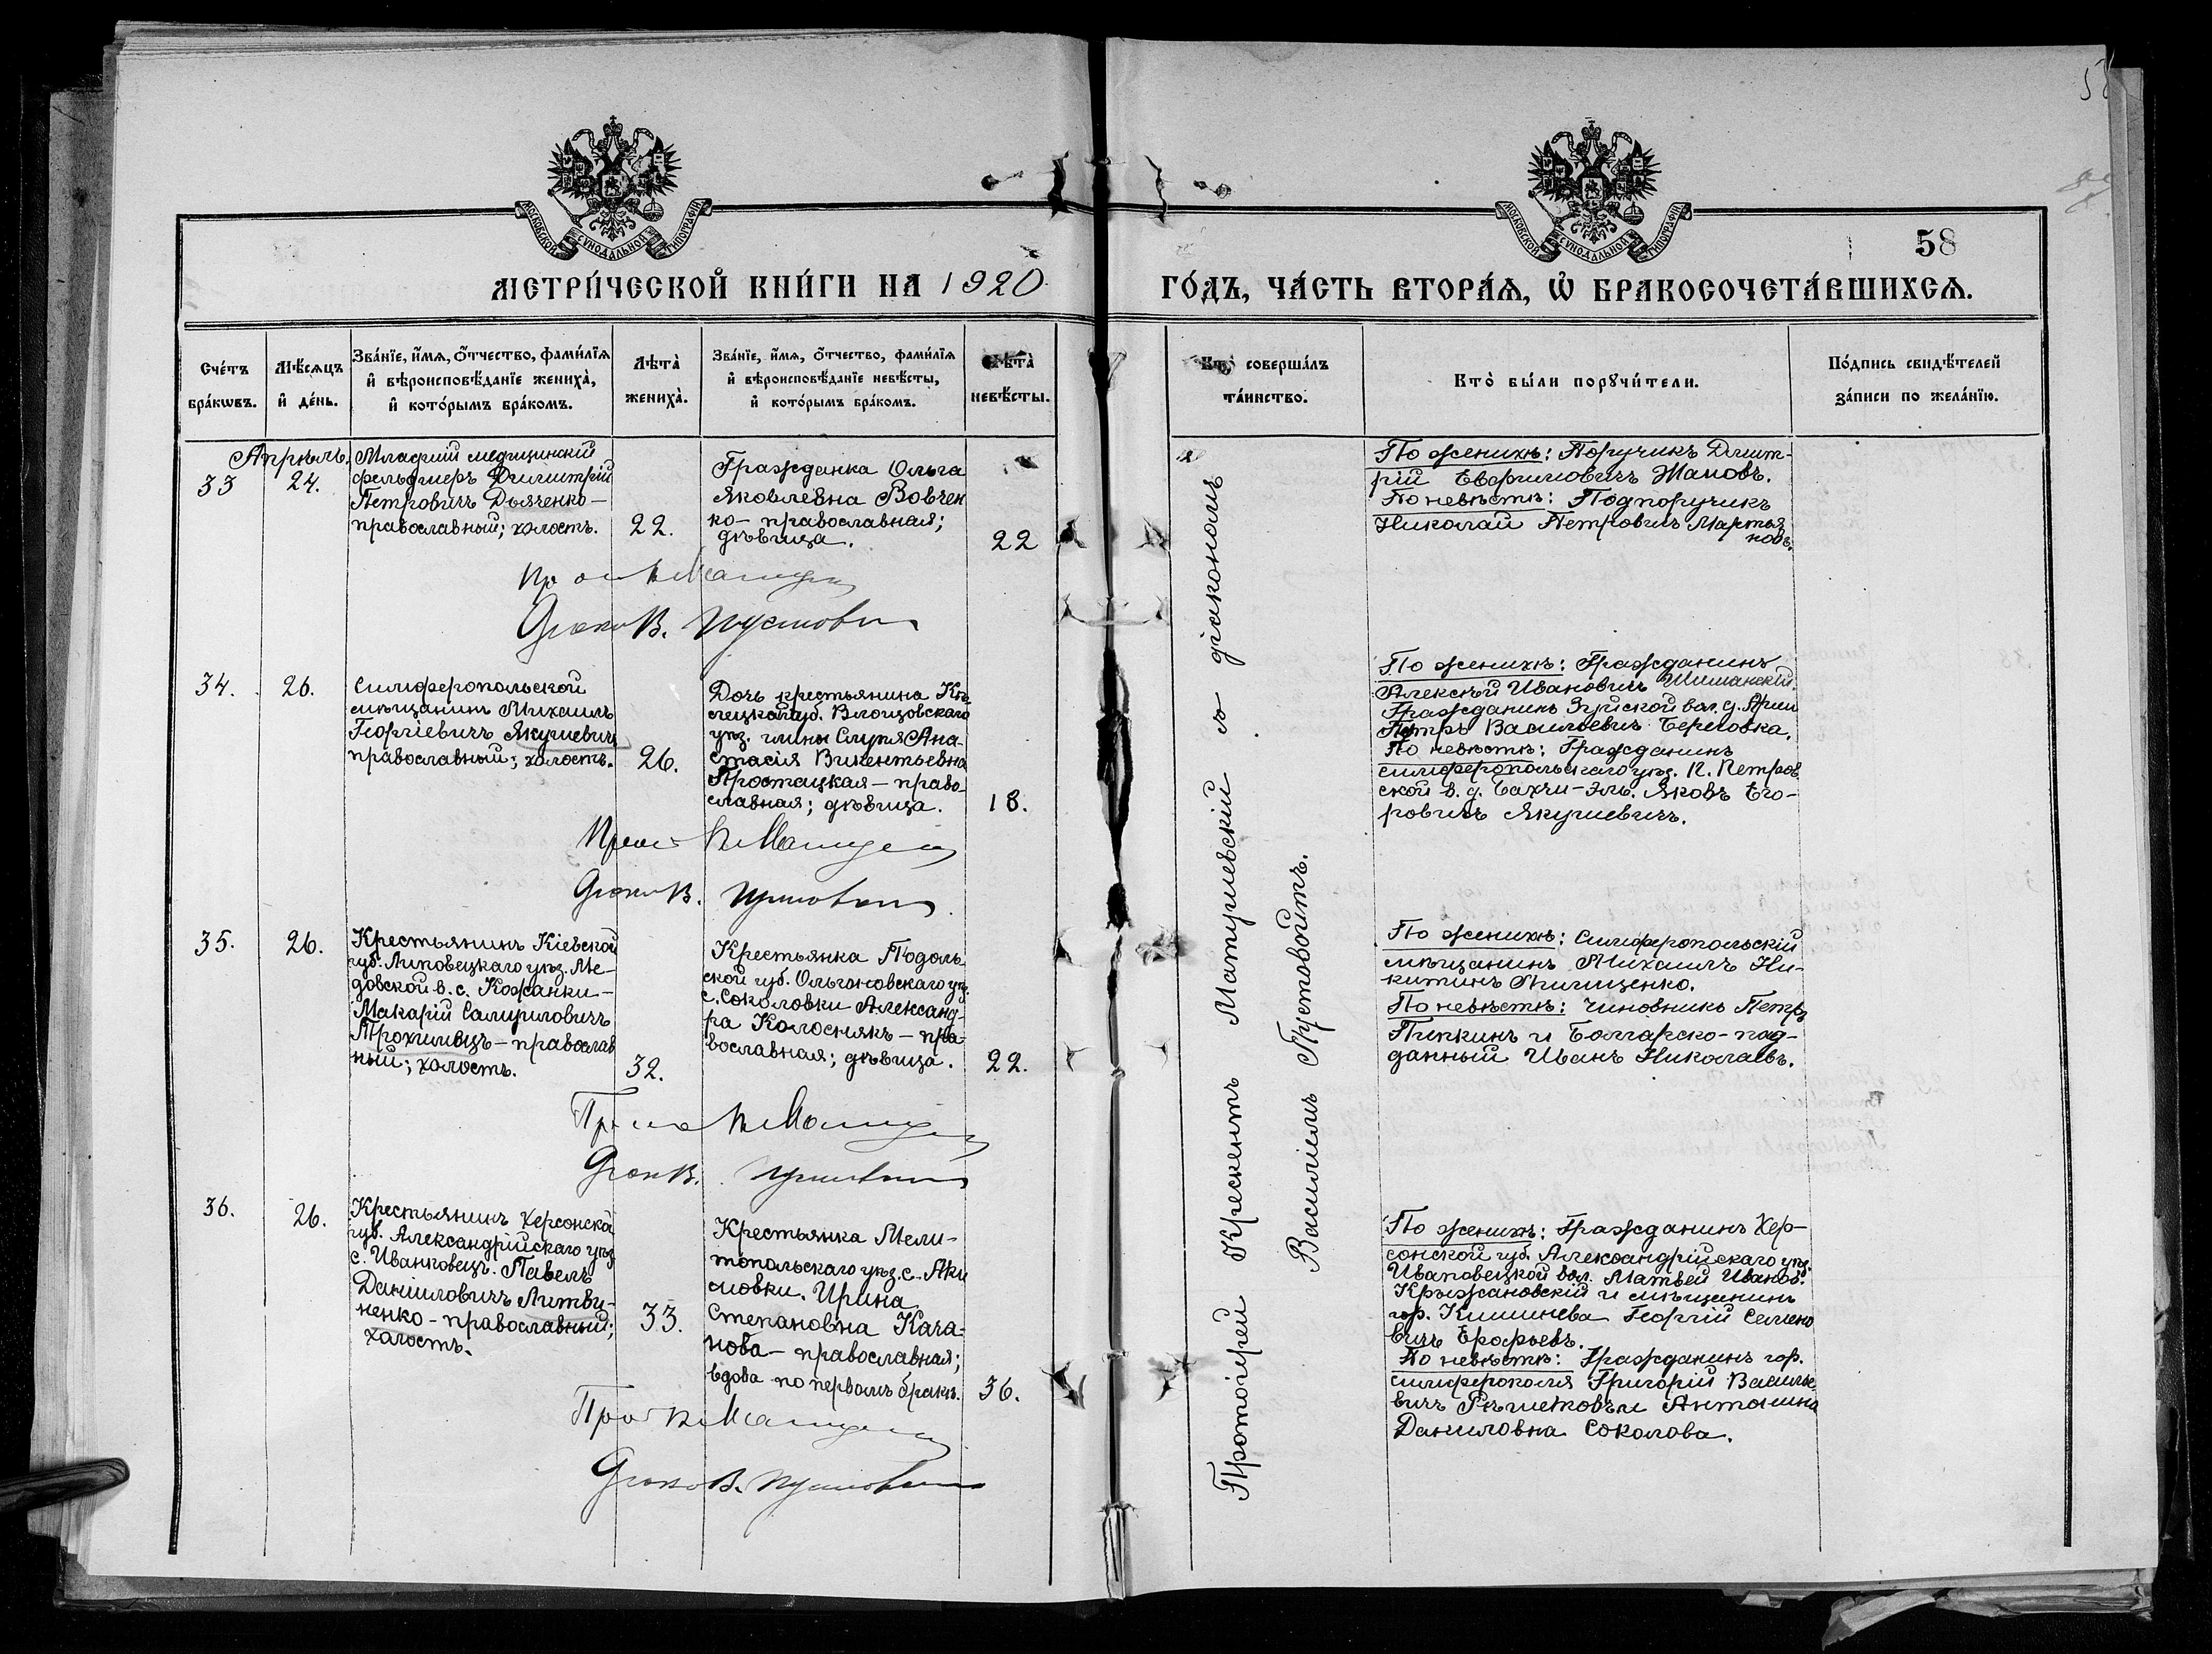 58
МОСКОВСКОЙ СѴНОДАЛЬНОЙ ТИПОГРАФІИ
МОСКОВСКОЙ СѴНОДАЛЬНОЙ ТИПОГРАФІИ
МЕТРИ́ЧЕСКОЙ КНИ́ГИ НА 1920
ГО́ДЪ, ЧА́СТЬ ВТОРА́Ѧ, Ѡ҆ БРАКОСОЧЕТА́ВШИХСѦ.
Сче́тъ
бра́кωвъ.
Мѣ́сѧцъ
и҆ де́нь.
Зва́нїе, и҆́мѧ, ѻ҆́тчество, фами́лїѧ
и҆ вѣроисповѣ́данїе жениха̀,
и҆ кото́рымъ бра́комъ.
Лѣта̀
жениха̀.
Зва́нїе, и҆́мѧ, ѻ҆́тчество, фами́лїѧ
и҆ вѣроисповѣ́данїе невѣ́сты,
и҆ кото́рымъ бра́комъ.
Лѣта̀
невѣ́сты.
Кто̀ соверша́лъ
та́инство.
Кто̀ бы́ли порꙋчи́тели.
По́дпись свидѣ́телей
за́писи по жела́нїю.
Апрѣль.
33
24.
Младшій медицинскій
фельдшеръ Димитрій
Петровичъ Дьяченко–
православный; холостъ.
22.
Гражданка Ольга
Яковлевна Вовчен
ко – православная;
дѣвица.
22
По женихѣ: Поручикъ Димит-
рій Евфимовичъ Жамовъ.
По невѣстѣ: Подпоручикъ
Николай Петровичъ Мартья
новъ.
34.
26.
Симферопольской
мѣщанинъ Михаилъ
Георгіевичъ Якушевичъ
православный; холостъ.
26.
Дочь крестьянина Кѣ-
лецкой губ. Влощовскаго
уѣз. гмины Слупя Ана-
стасія Викентьевна
Простацкая – право-
славная; дѣвица.
18.
По женихѣ: Гражданинъ
Алексѣй Ивановичъ Шиманскій.
Гражданинъ Зуйской вол. д.
Петръ Васильевичъ Береговка.
По невѣстѣ: Гражданинъ
симферопольскаго уѣз. П. Петров
ской в. д. Бахчи-Эль. Яковъ Его-
ровичъ Якушевичъ.
35.
26.
Крестьянинъ Кіевской
губ. Липовецкаго уѣз. Ме-
довской в. с. Кожанки–
Макарій Самуиловичъ
Трохимецъ – православ
ный; холостъ.
32.
Крестьянка Подоль-
ской губ. Ольгоповскаго уѣз.
с. Соколовки Александ-
ра Колоснякъ – пра-
вославная; дѣвица.
22.
По женихѣ: Симферопольскій
мѣщанинъ Михаилъ Ни-
китинъ
По невѣстѣ: Чиновникъ Петръ
Пипкинъ и Болгарско-под-
данный Иванъ Николаевъ.
36.
26.
Крестьянинъ Херсонской
губ. Александрійскаго уѣз
с. Иванковецъ. Павелъ
Даніиловичъ Литви-
ненко – православный;
холостъ.
33.
Крестьянка Мели-
топольскаго уѣз. с. Аки
мовки. Ирина
Степановна Кача-
нова – православная;
вдова по первомъ бракѣ.
36.
По женихѣ: Гражданинъ Хер-
сонской губ. Александрійскаго уѣз.
Ивановецкой вол. Матвей Иванов.
Крыжановскій и мѣщанинъ
гор. Кишинева Георгій Семено
вичъ Ерофьевъ.
По невѣстѣ: Гражданинъ гор.
симферополя Григорій Василье
вичъ Рѣшетовъ и Антонина
Даниловна Соколова.
Протоіерей Крескентъ Матушевскій съ діакономъ
Василіемъ Пустовойтъ.